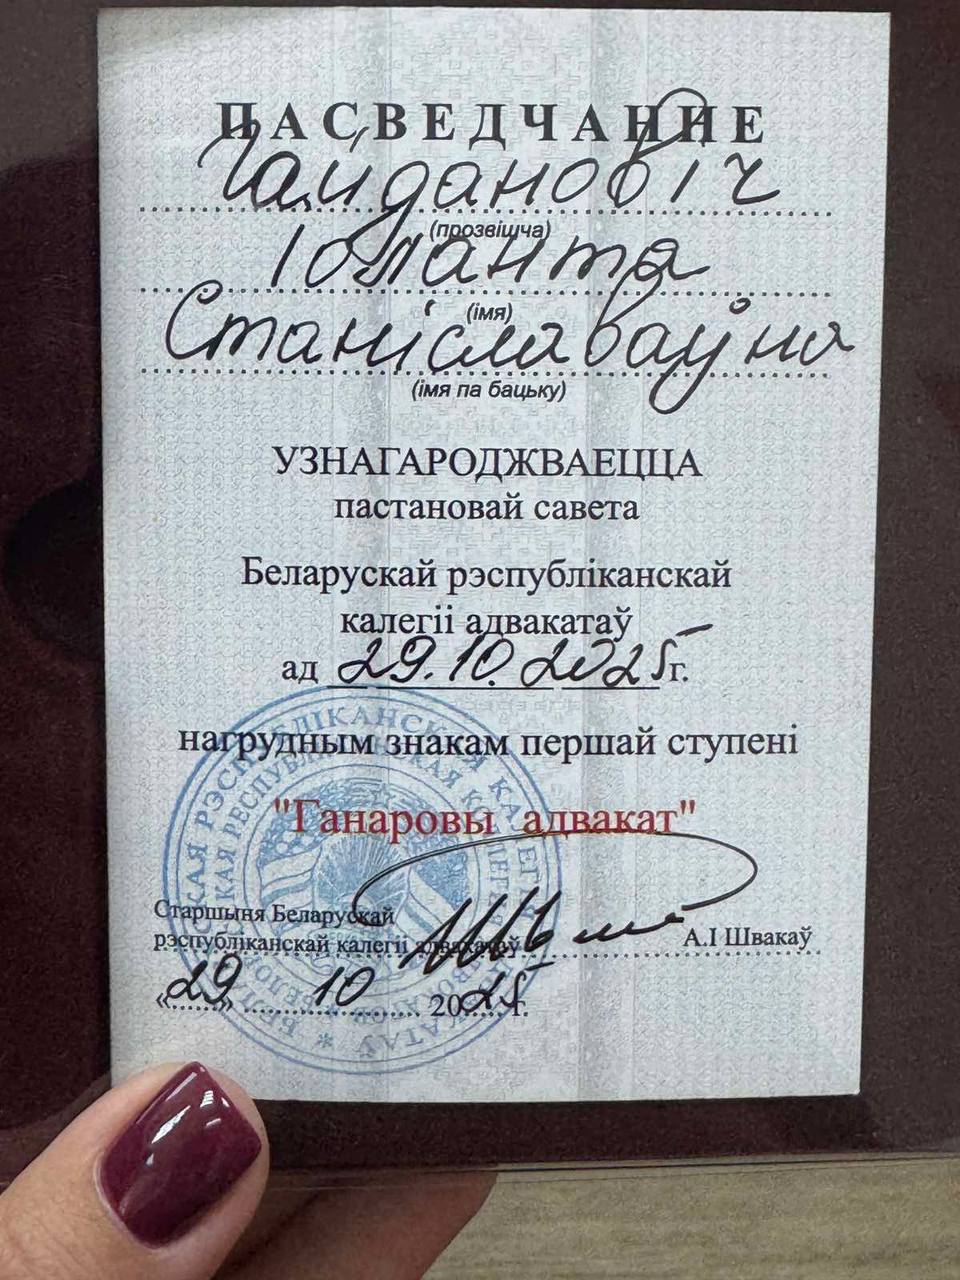 ПАСВЕДЧАННЕ
Гайдановіч
(прозвішча)
Іоланта
(імя)
Станіславаўна
(імя па бацьку)
УЗНАГАРОДЖВАЕЦЦА
пастановай савета
Беларускай рэспубліканскай
калегіі адвакатаў
ад 29.10.2025 г.
нагрудным знакам першай ступені
"Ганаровы адвакат"
Старшыня Беларускай
рэспубліканскай калегіі адвакатаў А.І Швакаў
«29» 10 2025 г.